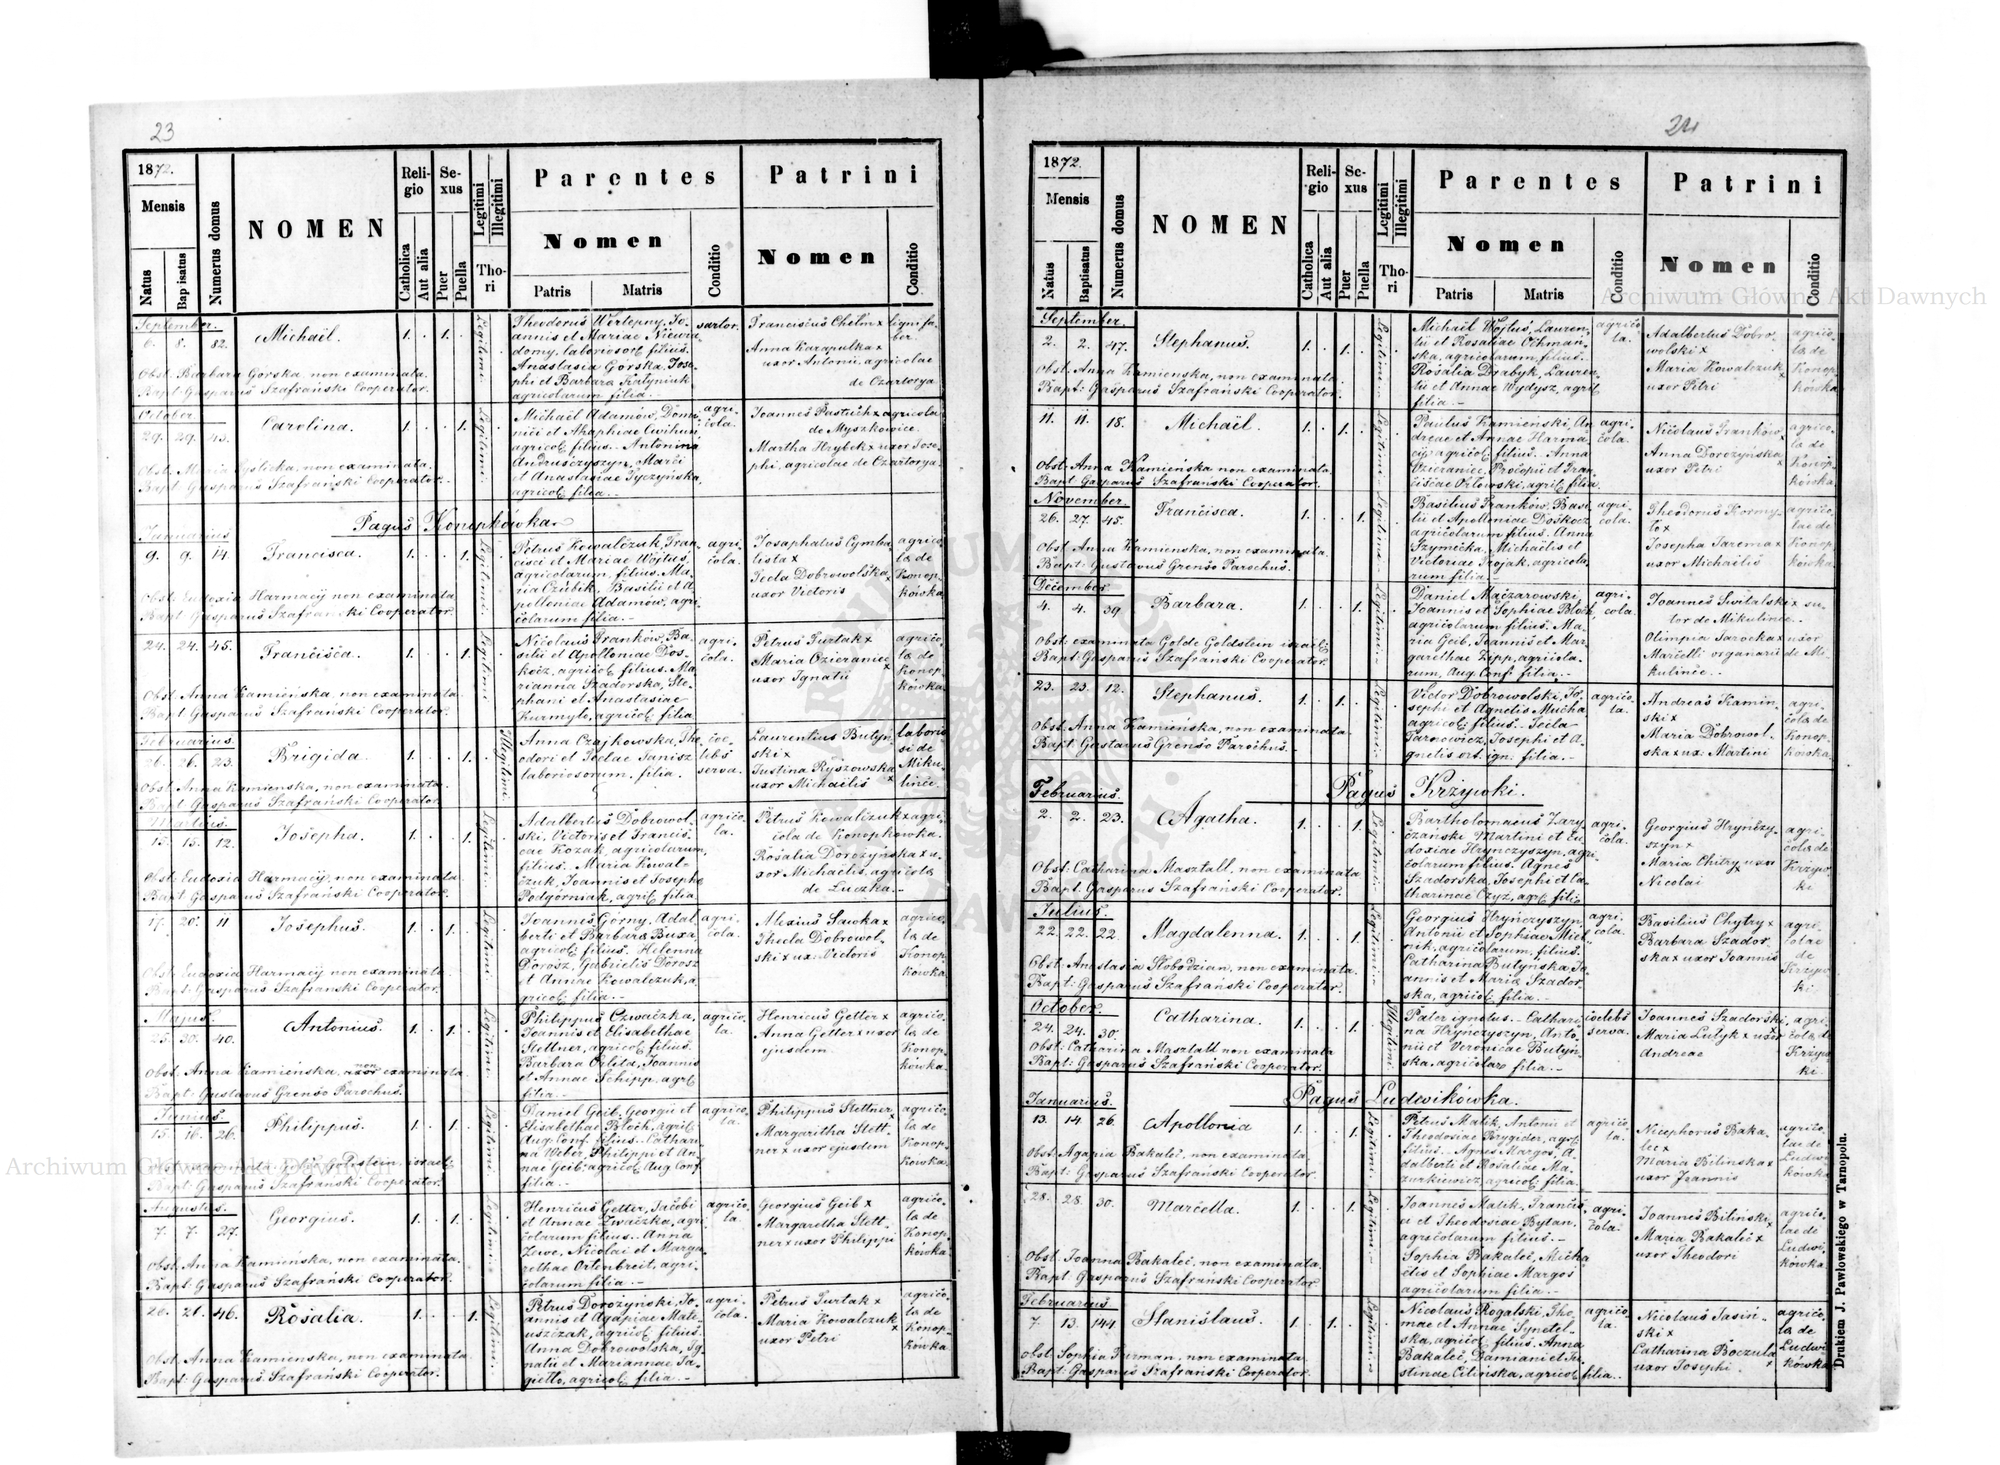 23
1872.
Mensis
Natus
Baptisatus
Numerus domus
NOMEN
Religio
Catholica
Aut alia
Sexus
Puer
Puella
Legitimi
Illegitimi
Thori
Parentes
Nomen
Patris
Matris
Conditio
Patrini
Nomen
Conditio
September.
6. 8. 82. Michaël. 1. 1.
Legitimi.
Theodorus Wertepny, Jo-
annis et Mariae
laborios. filius.
Anastasia Górska, Jose-
phi et Barbara
agricolarum filia. –
sartor.
Franciscus Chelm x
Anna Karapulka x
uxor Antonii, agricolae
de Czartorya
Obst: Barbara Górska non examinata.
Bapt: Gasparus Szafrański Cooperator.
October.
29. 29. 43. Carolina. 1. 1.
Legitimi.
Michaël Adamów, Domi-
nici et Ahaphiae
agricol. filius. Antonina
Andruszczyszyn, Marci
et Anastasiae Tyczyńska,
agricol. filia. –
agri-
cola.
Joannes Pastuch x agricola
de Myszkowice.
Martha Hrycik x uxor Jose-
phi, agricolae de Czartorya.
Obst: Maria non examinata.
Bapt: Gasparus Szafrański Cooperator.
Pagus Konopkówka
Januarius
9. 9. 14. Francisca. 1. 1.
Legitimi.
Petrus Kowalczuk, Fran-
cisci et Mariae Wojtuś,
agricolarum, filius. Ma-
ria Czubik, Basilii et A-
polloniae Adamów, agri-
colarum filia. –
agri-
cola.
Josaphatus Cymba-
lista x
Tecla Dobrowolska x
uxor Victoris
agrico-
lae de
Konop-
kówka.
Obst: Eudoxia Harmacij non examinata.
Bapt: Gasparus Szafrański Cooperator.
24. 24. 45. Francisca. 1. 1.
Legitimi.
Nicolaus Franków, Ba-
silii et Apolloniae Dos-
kocz, agricol. filius. Ma-
rianna Szadorska, Ste-
phani et Anastasiae
Kurmyto, agricol. filia.
agri-
cola.
Petrus Furtak x
Maria Ozieraniec x
uxor Ignatii
agrico-
lae de
Konop-
kówka.
Obst: Anna Kamińska non examinata.
Bapt: Gasparus Szafrański Cooperator.
Februarius.
26. 26. 23. Brigida. 1. 1.
Illegitimi.
Anna Czajkowska, The-
odori et Teclae Janisz
laboriosorum, filia.
coe-
lebs
serva.
Laurentius Butyń-
ski x
Justina Ryszowska x
uxor Michaelis
laborio-
si de
Miku-
lińce.
Obst: Anna Kamienska, non examinata.
Bapt: Gasparus Szafrański Cooperator.
Martius.
15. 15. 12. Josepha. 1. 1.
Legitimi.
Adalbertus Dobrowol-
ski, Victoris et Francis-
cae Kozak, agricolarum,
filius. Maria Kowal-
czuk, Joannis et Josepha
Podgórniak, agric. filia
agrico-
la.
Petrus Kowalczuk x agri-
cola de Konopkówka.
Rosalia Dorożyńska x u-
xor Michaelis, agricolae
de Łuczka. –
Obst: Eudoxia Harmacij, non examinata.
Bapt: Gasparus Szafrański Cooperator.
17. 20. 11 Josephus. 1. 1.
Legitimi.
Joannes Górny, Adal-
berti et Barbara Buxa
agricol. filius. Helenna
Dorosz, Gabrielis Dorosz
et Annae Kowalczuk, a-
gricol. filia. –
agri-
cola.
Alexius Sawka x
Thecla Dobrowol-
ski x ux: Victoris
agrico-
lae de
Konop-
kówka.
Obst: Eudoxia Harmacij non examinata.
Bapt: Gasparus Szafrański Cooperator.
Majus.
25. 30. 40. Antonius. 1. 1.
Legitimi.
Philippus Czwaczka,
Joannis et Elisabethae
Stettner, agricol. filius.
Barbara Orlita, Joannis
et Annae Schipp, agr.
filia. –
agrico-
la.
Henricus Getter x
Anna Getter x uxor
ejusdem
agrico-
lae de
Konop-
kówka.
Obst: Anna Kamieńska, non examinata.
Bapt: Gustavus Grenso Parochus.
Junius.
15. 16. 26. Philippus. 1. 1.
Legitimi.
Daniel Geib, Georgii et
Elisabethae Bloch, agric.
Aug. Conf. filius. Cathari-
na Weber, Philippi et An-
nae Geib, agricol. Aug. Conf.
filia. –
agrico-
la.
Philippus Stettner x
Margaritha Stett-
ner x uxor ejusdem
agrico-
lae de
Konop-
kówka.
Bapt: Gasparus Szafrański Cooperator.
Augustus.
7. 7. 27. Georgius. 1. 1.
Legitimi.
Henricus Getter, Jacobi
et Annae Zwaczka, agri-
colarum filius. Anna
Zewe, Nicolai et Marga-
rethae Ortenbreit, agri-
colarum filia. –
agrico-
la.
Georgius Geib x
Margaretha Stett-
ner x uxor Philippi
agrico-
la de
Konop-
kówka
Obst: Anna Kamieńska, non examinata.
Bapt: Gasparus Szafrański Cooperator.
20. 21. 46. Rosalia. 1. 1.
Legitimi.
Petrus Dorożyński, Jo-
annis et Agapiae Mate-
uszczak, agricol. filius.
Anna Dobrowolska, Ig-
natii et Mariannae Ja-
giełło, agricol. filia. –
agri-
cola.
Petrus Furtak x
Maria Kowalczuk x
uxor Petri
agrico-
lae de
Konop-
kówka.
Obst: Anna Kamienska, non examinata.
Bapt: Gasparus Szafrański Cooperator.
24
1872.
Mensis
Natus
Baptisatus
Numerus domus
NOMEN
Religio
Catholica
Aut alia
Sexus
Puer
Puella
Legitimi
Illegitimi
Thori
Parentes
Nomen
Patris
Matris
Conditio
Patrini
Nomen
Conditio
September.
2. 2. 47. Stephanus. 1. 1.
Legitimi.
Michaël Wojtuś, Lauren-
tii et Rosaliae Ochman-
ska, agricolarum, filius.
Rosalia Drabyk, Lauren-
tii et Annae Wydysz, agric.
filia. –
agrico-
la.
Adalbertus Dobro-
wolski x
Maria Kowalczuk x
uxor Petri
agrico-
lae de
Konop-
kówka.
Obst: Anna Kamienska, non examinata.
Bapt: Gasparus Szafrański Cooperator.
11. 11. 18. Michaël. 1. 1.
Legitimi.
Paulus Kamieński, An-
dreae et Annae Harma-
cij, agricol. filius. Anna
Ozieraniec, Procopii et Fran-
ciscae Orłowski, agric. filia.
agri-
cola.
Nicolaus Franków x
Anna Dorożyńska x
uxor Petri
agrico-
la de
Konop-
kówka.
Obst: Anna Kamieńska non examinata.
Bapt: Gasparus Szafrański Cooperator.
November.
26. 27. 45. Francisca. 1. 1.
Legitimi.
Basilius Franków, Basi-
lii et Apolloniae Doskocz,
agricolarum filius. Anna
Szymećka, Michaelis et
Victoriae Trojak, agricola-
rum filia. –
agri-
cola.
Theodorus Kormy-
to x
Josepha Jarema x
uxor Michaelis
agrico-
lae de
Konop-
kówka.
Obst: Anna Kamienska, non examinata.
Bapt: Gustavus Grenso Parochus.
December.
4. 4. 39. Barbara. 1. 1.
Legitimi.
Daniel Maczarowski,
Joannis et Sophiae Bloch,
agricolarum filius. Ma-
ria Geib, Joannis et Mar-
garethae Zipp, agricola-
rum, Aug. Conf. filia. –
agri-
cola.
Joannes Switalski x su-
tor de Mikulińce.
Olimpia Sarocka x uxor
Marcelli organarii de Mi-
kulińce.
Obst: examinata Golde Goldstein israel.
Bapt: Gasparus Szafranski Cooperator.
23. 23. 12. Stephanus. 1. 1.
Legitimi.
Victor Dobrowolski, Jo-
sephi et Agnetis Mucha
agricol. filius. Tecla
Tarnowicz, Josephi et A-
gnetis ort. ign. filia. –
agrico-
la.
Andreas Kamin-
ski x
Maria Dobrowol-
ska x ux. Martini
agri-
colae de
Konop-
kówka.
Obst: Anna Kamińska, non examinata.
Bapt: Gustavus Grenso Parochus. –
Pagus Krzywki.
Februarius.
2. 2. 23. Agatha. 1. 1.
Legitimi.
Bartholomaeus Zary-
czański, Martini et Eu-
doxiae Hryńczyszyn, agri-
colarum filius. Agnes
Szadorska, Josephi et Ca-
tharinae Czyż, agr. filia
agri-
cola.
Georgius Hryńczy-
szyn x
Maria Chitry uxor
Nicolai
agri-
colae de
Krzyw-
ki
Obst: Catharina Masztall, non examinata
Bapt: Gasparus Szafrański Cooperator.
Julius.
22. 22. 22. Magdalenna. 1. 1.
Legitimi.
Georgius Hryńczyszyn,
Antonii et Sophiae Miel-
nik, agricolarum, filius.
Catharina Butyńska, Jo-
annis et Maria Szador-
ska, agricol. filia. –
agri-
cola.
Basilius Chytry x
Barbara Szador-
ska x uxor Joannis
agri-
colae
de
Krzyw-
ki.
Obst: Anastasia Słobodzian, non examinata.
Bapt: Gasparus Szafrański Cooperator.
October.
24. 24. 30. Catharina. 1. 1.
Illegitimi.
Pater ignotus. – Cathari-
na Hryńczyszyn, Anto-
nii et Veronicae Butyń-
ska, agricolar. filia. –
coelebs
serva.
Joannes Szadorski x
Maria Lutyk x uxor
Andreae
agri-
colae de
Krzyw-
ki.
Obst: Catharina Masztall non examinata
Bapt: Gasparus Szafrański Cooperator.
Pagus Ludwikówka.
Januarius.
13. 14. 26. Apollonia 1. 1.
Legitimi.
Petrus Malik, Antonii et
Theodosiae Brygider, agr.
filius. Agnes Margos, A-
dalberti et Rosaliae Ma-
zurkiewicz, agricol. filia.
agrico-
la.
Nicephorus Baka-
lec x
Maria Bilinska x
uxor Joannis
agrico-
lae de
Ludwi-
kówka
Obst: Agapia Bakalec, non examinata.
Bapt: Gasparus Szafrański Cooperator.
28. 28. 30. Marcella. 1. 1.
Legitimi.
Joannes Malik, Francis-
ci et Theodosiae Bytan,
agricolarum filius. –
Sophia Bakalec, Micha-
elis et Sophiae Margos
agricolarum filia. –
agri-
cola.
Joannes Biliński x
Maria Bakalec x
uxor Theodori
agrico-
lae de
Ludwi-
kówka.
Obst: Joanna Bakalec, non examinata.
Bapt: Gasparus Szafrański Cooperator
Februarius
7. 13. 144. Stanislaus. 1. 1.
Legitimi.
Nicolaus Rogalski, Tho-
mae et Annae Synetel-
ska, agricol. filius. Anna
Bakalec, Damiani et Ju-
stinae Cilinska, agricol. filia.
agrico-
la.
Nicolaus Jasiń-
ski x
Catharina Boczula x
uxor Josephi
agrico-
la de
Ludwi-
kówka
Obst: Sophia Furman, non examinata.
Bapt: Gasparus Szafrański Cooperator.
Drukiem J. Pawłowskiego w Tarnopolu.
Archiwum Główne Akt Dawnych
Archiwum Główne Akt Dawnych